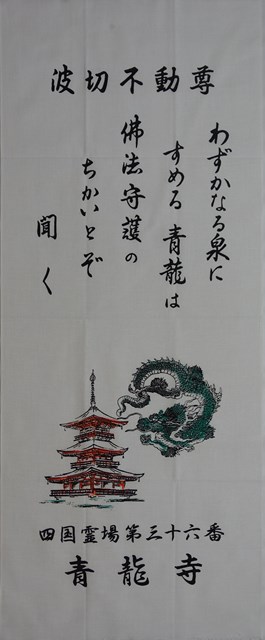 波切不動尊
わずかなる泉に
すめる青龍は
佛法守護の
ちかいとぞ
聞く
四国霊場第三十六番
青龍寺